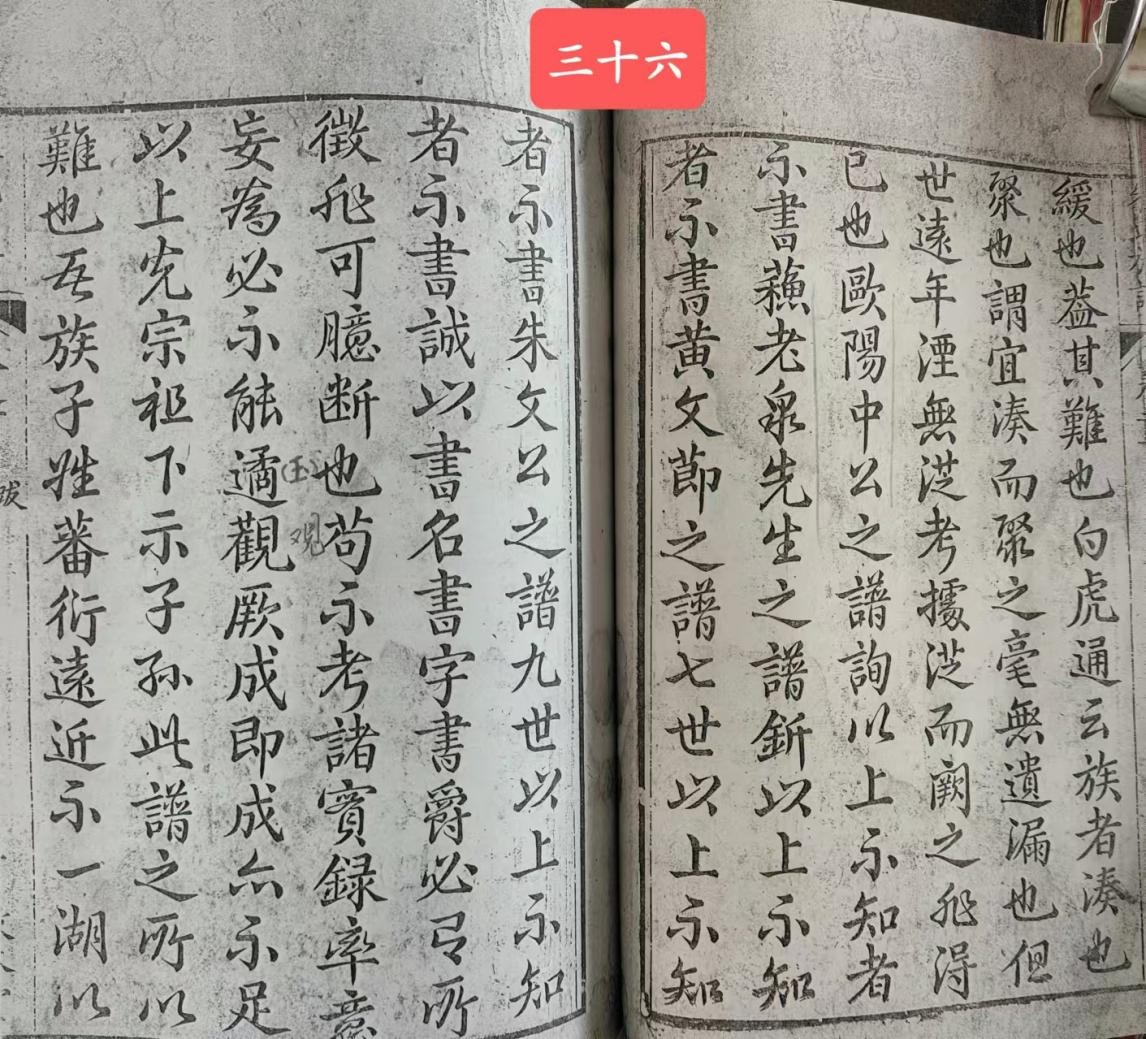 三十六
緩也葢其難也白虎通云族者湊也
聚也謂宜湊而聚之毫無遺漏也但
世遠年湮無従考據従而闕之非得
已也歐陽中公之譜詢以上不知者
不書蘓老泉先生之譜釿以上不知
者不書黄文節之譜七世以上不知
者不書朱文公之譜九世以上不知
者不書誠以書名書字書爵必有所
徵非可臆断也苟不考諸實録率意
妄為必不能遹觀厥成即成亦不足
以上光宗祖下示子孫此譜之所以
難也吾族子姓蕃衍遠近不一湖以
观
跋